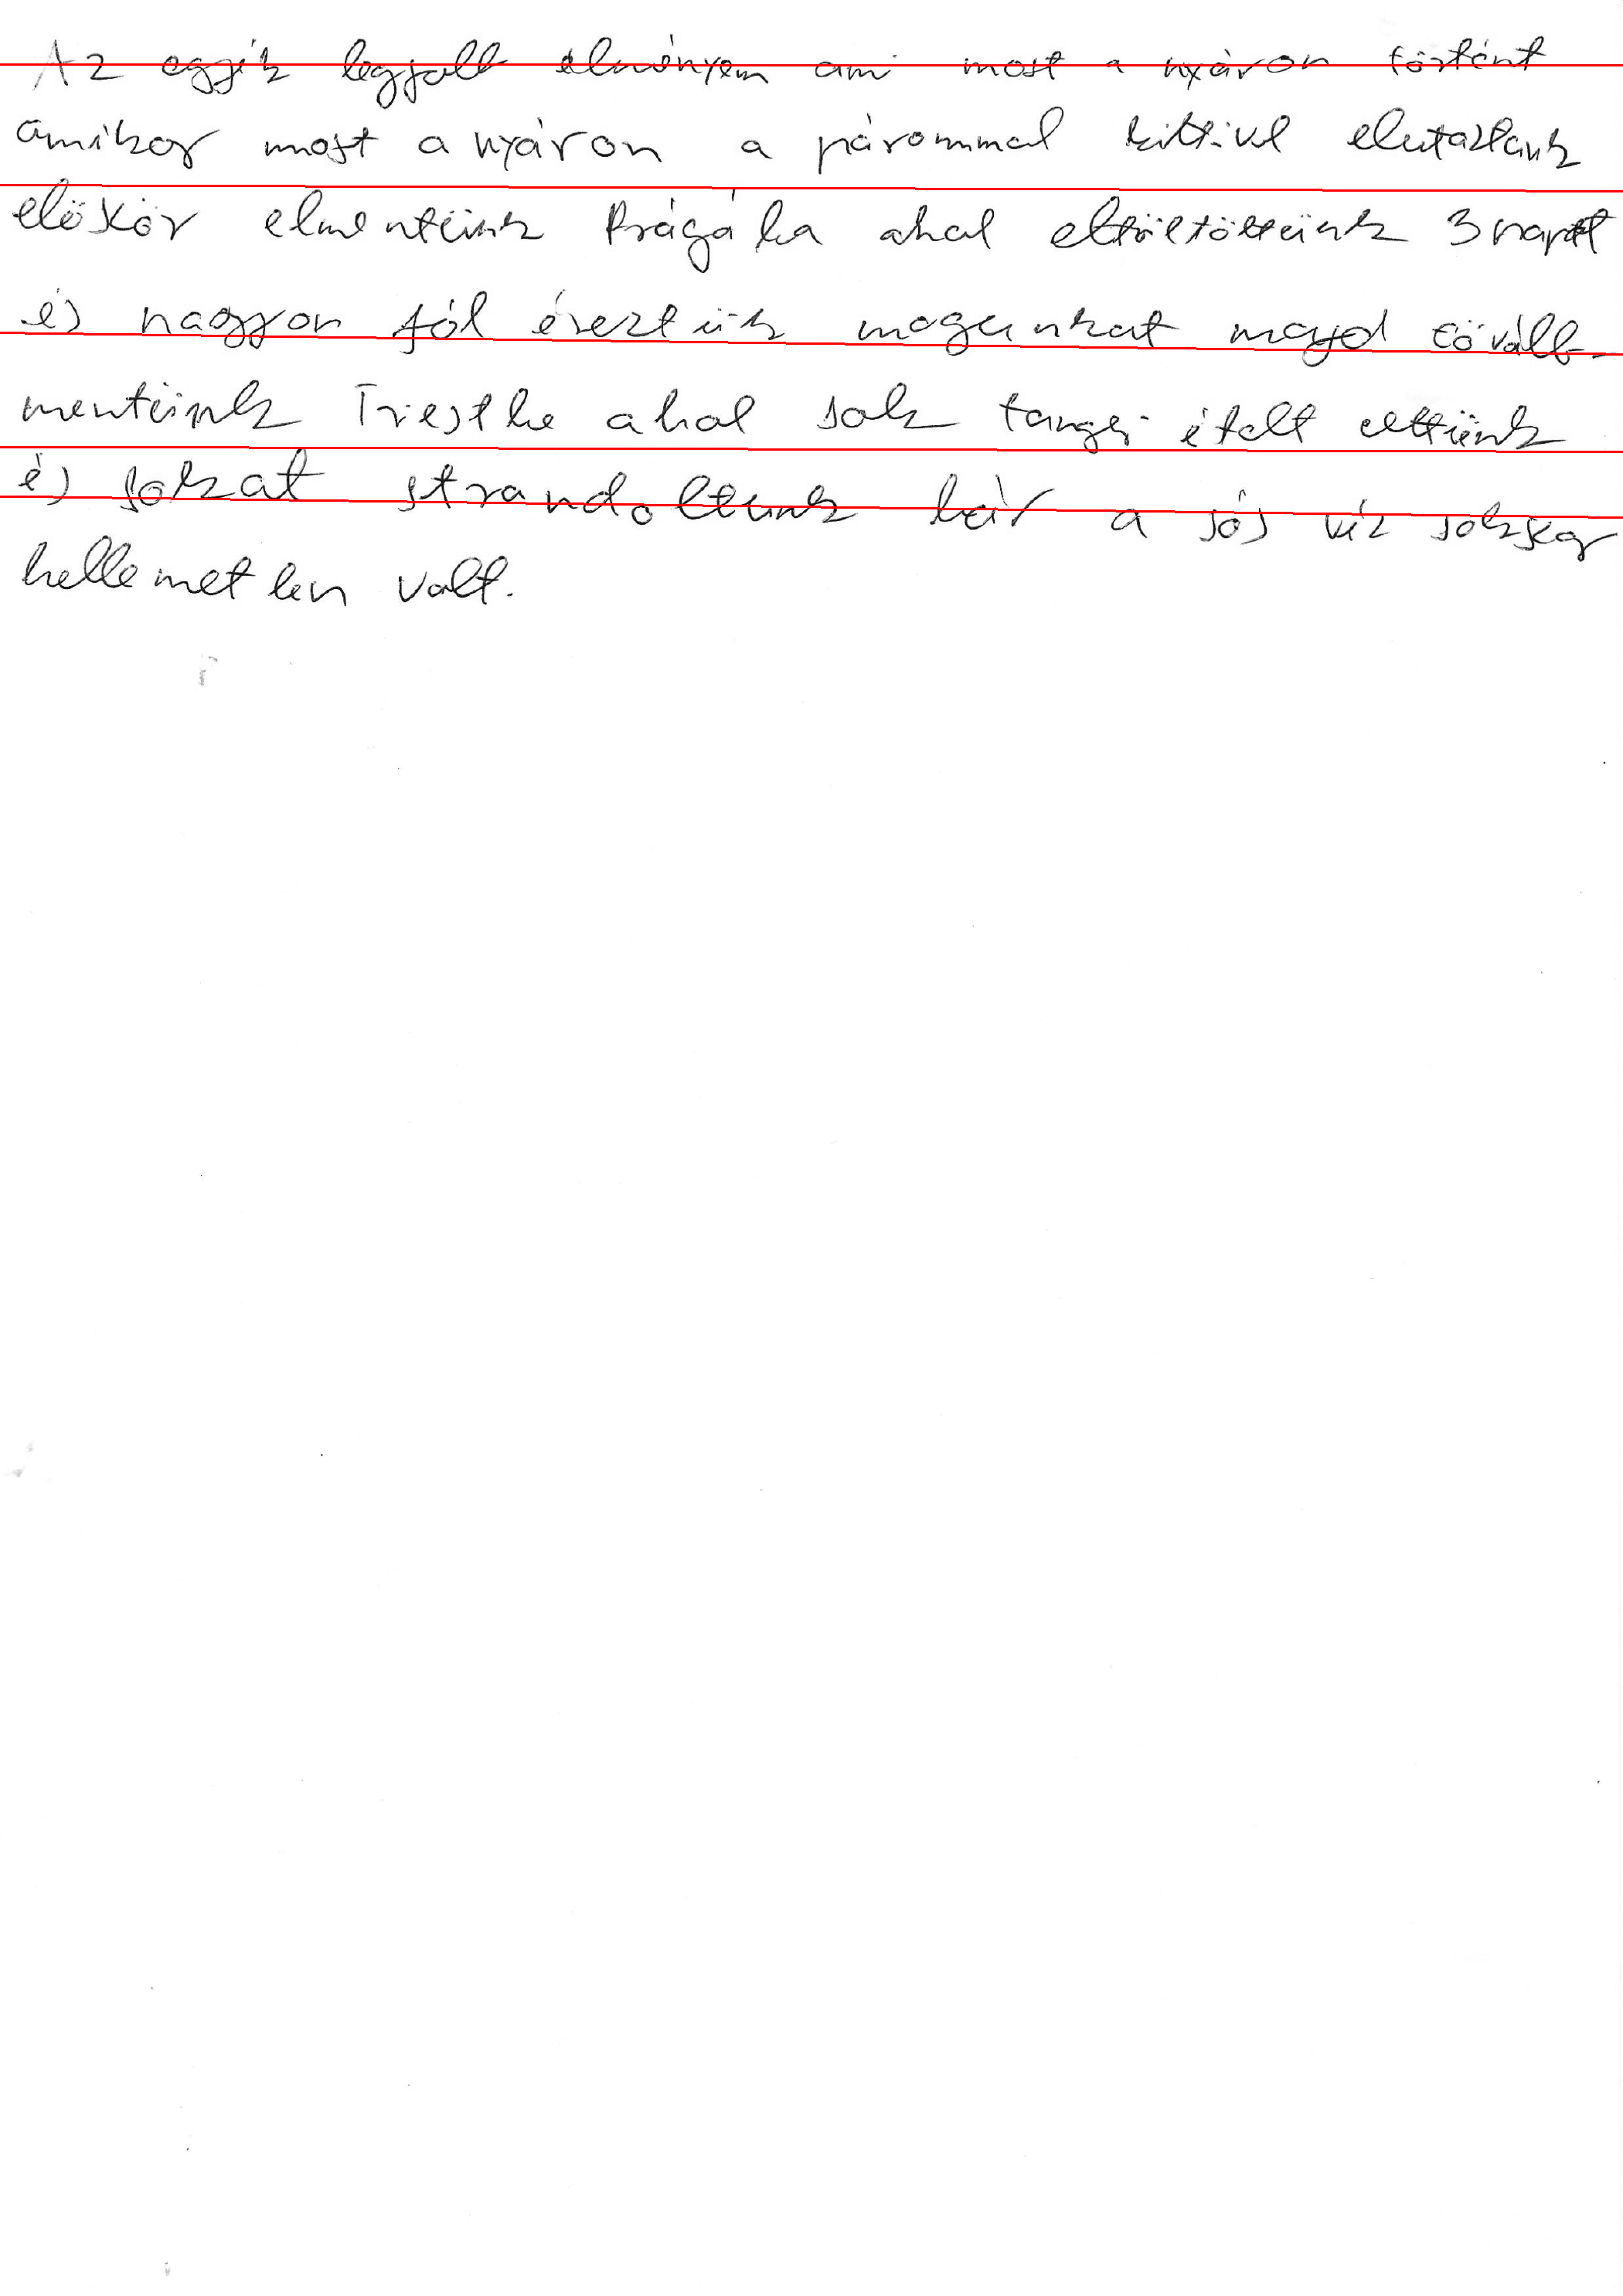 Az egyik legjobb élményem ami most a nyáron történt
amikor most a nyáron a párommal kittivel elutaztunk
elöször elmentünk Prágába ahol eltöltöttünk 3 napot
és nagyon jól éreztük magunkat majd tövább
mentünk Triestbe ahol sok tengeri ételt ettünk
és sokat strandoltunk bár a sós víz sokszor
kellemetlen volt.